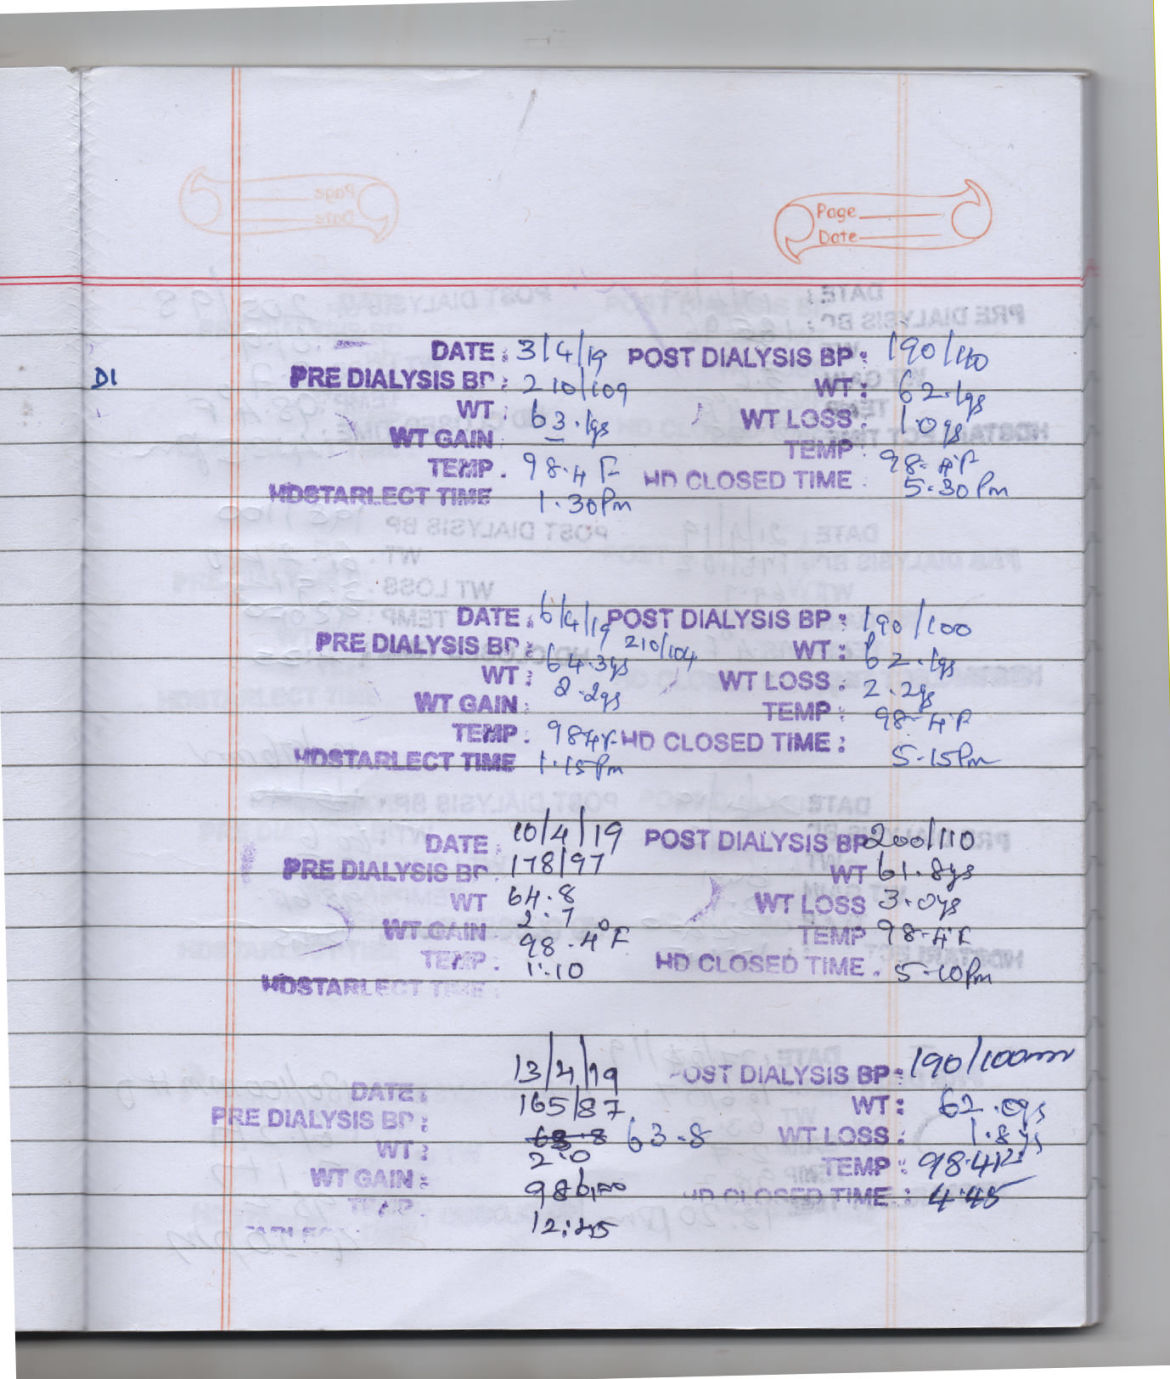 Page
Date
DATE: 3/4/19 POST DIALYSIS BP: 190/110
D1 PRE DIALYSIS BP: 210/109 WT: 62.1gs
WT: 63.1gs WT LOSS: 1.0gs
WT GAIN — TEMP: 98.4°F
TEMP. 98.4 F HD CLOSED TIME: 5.30Pm
HDSTARLECT TIME 1.30Pm
DATE: 6/4/19 POST DIALYSIS BP: 190/100
PRE DIALYSIS BP: 210/104 WT: 62.1gs
WT: 64.3gs WT LOSS: 2.2gs
WT GAIN: 2.2gs TEMP: 98.4°F
TEMP. 984F HD CLOSED TIME: 5.15Pm
HDSTARLECT TIME 1.15Pm
DATE: 10/4/19 POST DIALYSIS BP 200/110
PRE DIALYSIS BP. 178/97 WT 61.8gs
WT 64.8 WT LOSS 3.0gs
WT GAIN 2.7 TEMP 98.4F
TEMP. 98.4°F HD CLOSED TIME. 5.10Pm
HDSTARLECT TIME: 1:10
DATE: 13/4/19 POST DIALYSIS BP: 190/100mm
PRE DIALYSIS BP: 165/87 WT: 62.0gs
WT: 63.8 63.8 WT LOSS: 1.8gs
WT GAIN: 2.0 TEMP: 98.4F
TEMP. HD CLOSED TIME: 4.45
12:45